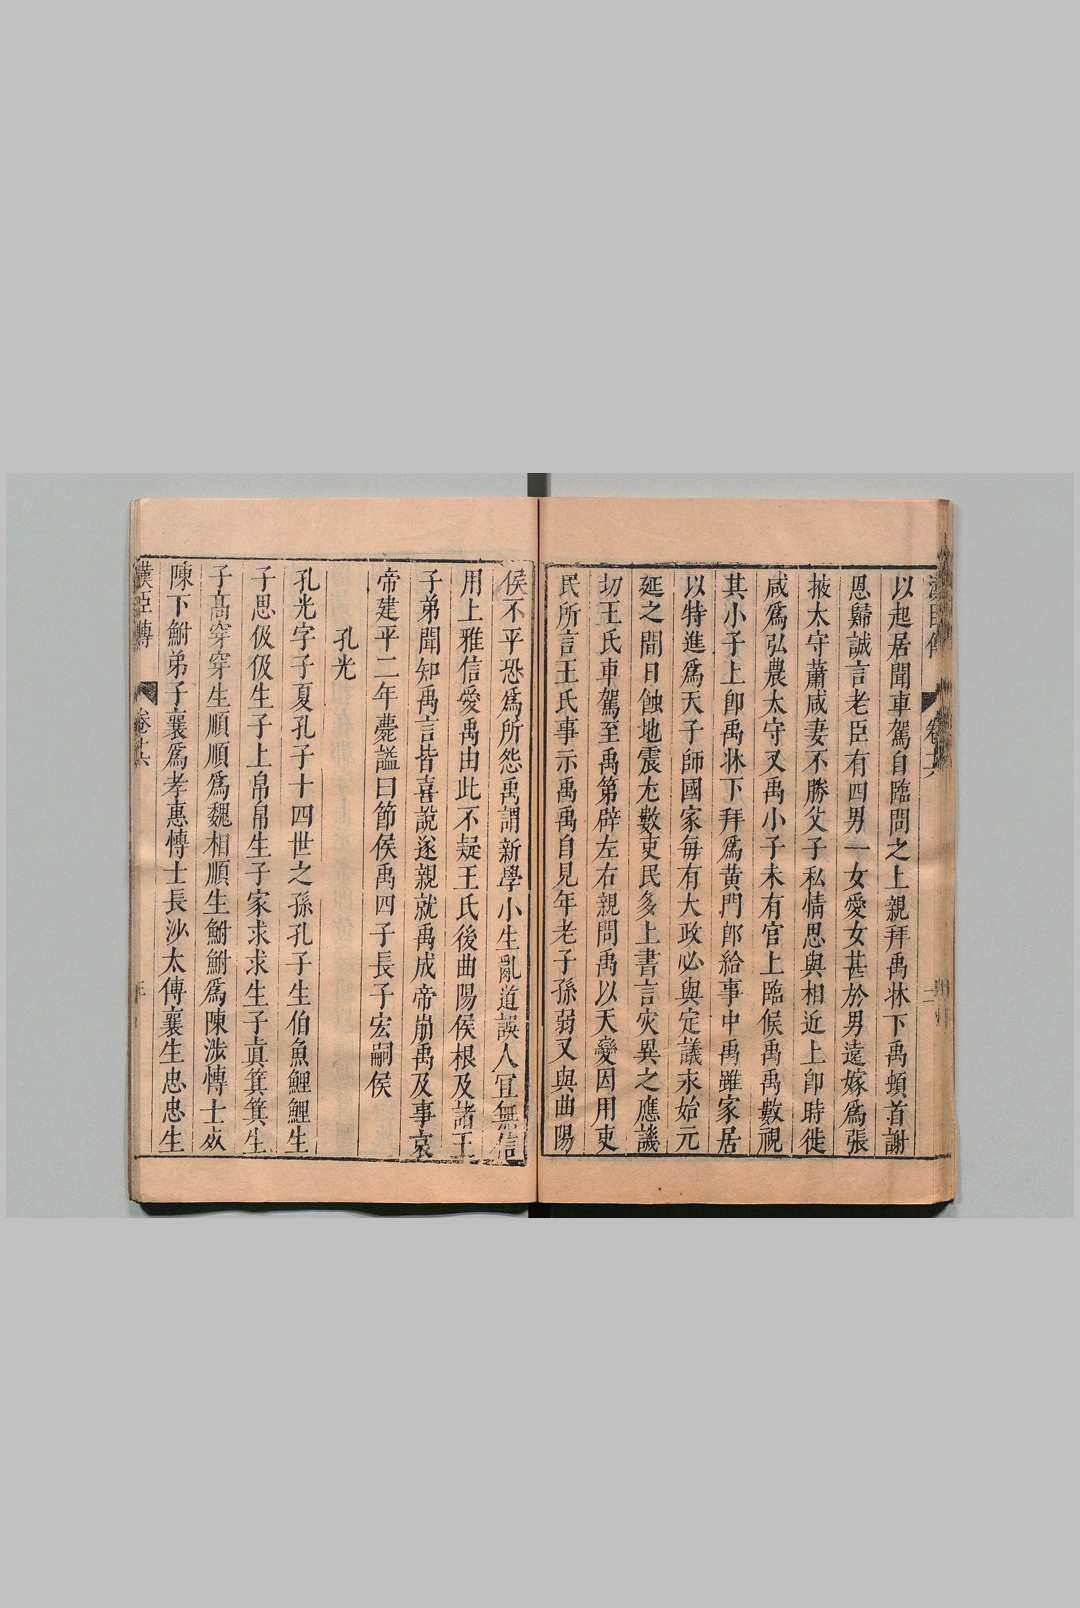 漢臣傳 卷十六
以起居聞車駕自臨問之上親拜禹牀下禹頓首謝
恩歸誠言老臣有四男一女愛女甚於男遠嫁爲張
掖太守蕭咸妻不勝父子私情思與相近上卽時徙
咸爲弘農太守又禹小子未有官上臨候禹禹數視
其小子上卽禹牀下拜爲黃門郎給事中禹雖家居
以特進爲天子師國家每有大政必與定議永始元
延之間日蝕地震尢數吏民多上書言灾異之應譏
切王氏車駕至禹第辟左右親問禹以天變因用吏
民所言王氏事示禹禹自見年老子孫弱又與曲陽
侯不平恐爲所怨禹謂新學小生亂道誤人宜無信
用上雅信愛禹由此不疑王氏後曲陽侯根及諸王
子弟聞知禹言皆喜說遂親就禹成帝崩禹及事哀
帝建平二年薨謚曰節侯禹四子長子宏嗣侯
孔光
孔光字子夏孔子十四世之孫孔子生伯魚鯉鯉生
子思伋伋生子上帛帛生子家求求生子眞箕箕生
子高穿穿生順順爲魏相順生鮒鮒爲陳涉博士𣦸
陳下鮒弟子襄爲孝惠博士長沙太傅襄生忠忠生
漢臣傳 卷十六